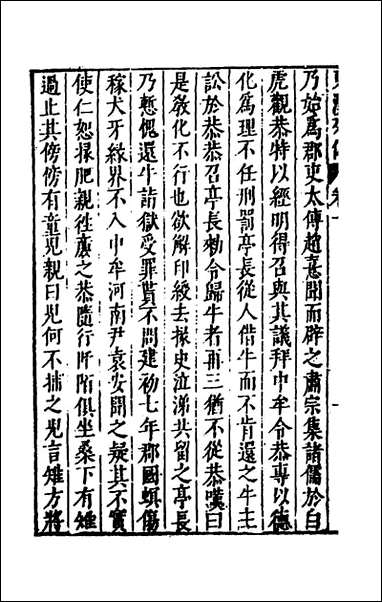 乃始爲郡吏太傅趙憙聞而辟之肅宗集諸儒於白
虎觀恭特以經明得召與其議拜中牟令恭專以德
化爲理不任刑罰亭長從人借牛而不肯還之牛主
訟於恭恭召亭長勑令歸牛者再三猶不從恭嘆曰
是敎化不行也欲解印綬去掾史泣涕共留之亭長
乃慙愧還牛詣獄受罪貰不問建初七年郡國螟傷
稼犬牙緣界不入中牟河南尹袁安聞之疑其不實
使仁恕掾肥親徃廉之恭隨行阡陌俱坐桑下有雉
過止其傍傍有童兒親曰兒何不捕之兒言雉方將